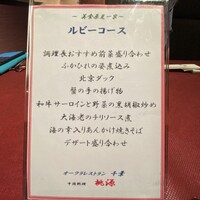 ルビーコース
調理長おすすめ前菜盛り合わせ
ふかひれの姿煮込み
北京ダック
蟹の手の揚げ物
和牛サーロインと野菜の黒胡椒炒め
大海老のチリソース煮
海の幸入りあんかけ焼きそば
デザート盛り合わせ
中国料理 桃源